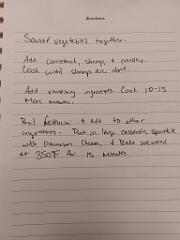 directions
Sauté vegetables together.
Add cornstarch, shrimp, & parsley.
Cook until shrimp are done.
Add remaining ingredients Cook 10-15
More minutes.
Boil fettuccini & add to other
ingredients. Put in large casserole, sprinkle
with Parmesan Cheese, & Bake uncovered
at 350°F for 15 minutes